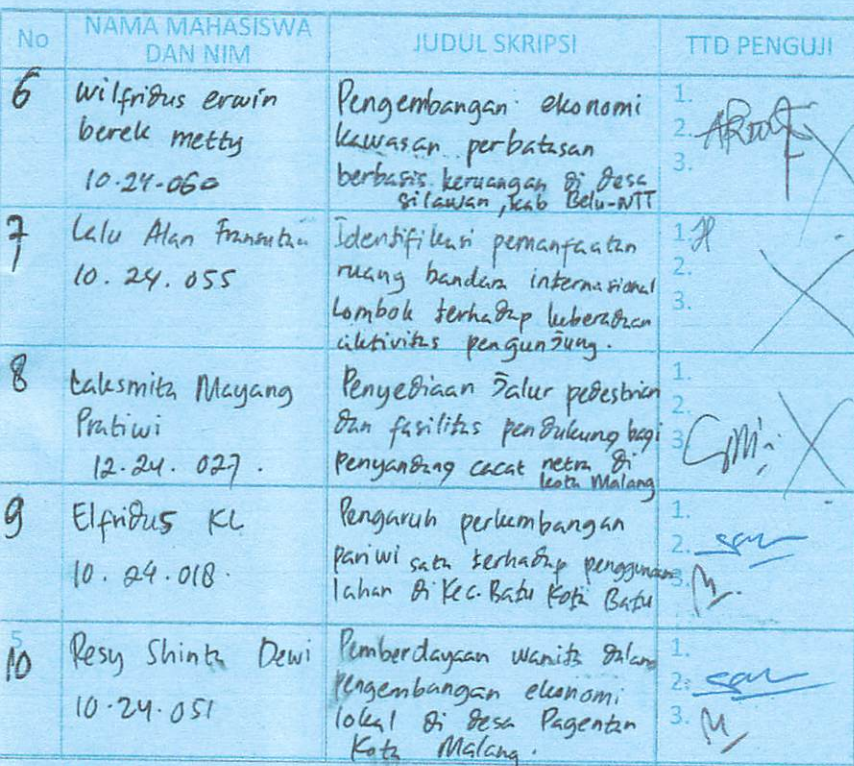 No
NAMA MAHASISWA
DAN NIM
JUDUL SKRIPSI
TTD PENGUJI
6
Wilfridus erwin
berek metty
10.24.060
Pengembangan ekonomi
kawasan perbatasan
berbasis keruangan di desa
silawan, kab Belu-NTT
1.
2.
3.
7
Lalu Alan
10.24.055
Identifikasi pemanfaatan
ruang bandara internasional
Lombok terhadap keberadaan
aktivitas pengunjung.
1.
2.
3.
8
Laksmita Mayang
Pratiwi
12.24.027.
Penyediaan Jalur pedestrian
dan fasilitas pendukung bagi
penyandang cacat netra di
kota Malang
1.
2.
3.
9
Elfridus KL
10.24.018.
Pengaruh perkembangan
pariwisata terhadap penggunaan
lahan di Kec. Batu Kota Batu
1.
2.
3.
5
10
Resy Shinta Dewi
10.24.051
Pemberdayaan wanita dalam
pengembangan ekonomi
lokal di desa Pagentan
Kota Malang.
1.
2.
3.